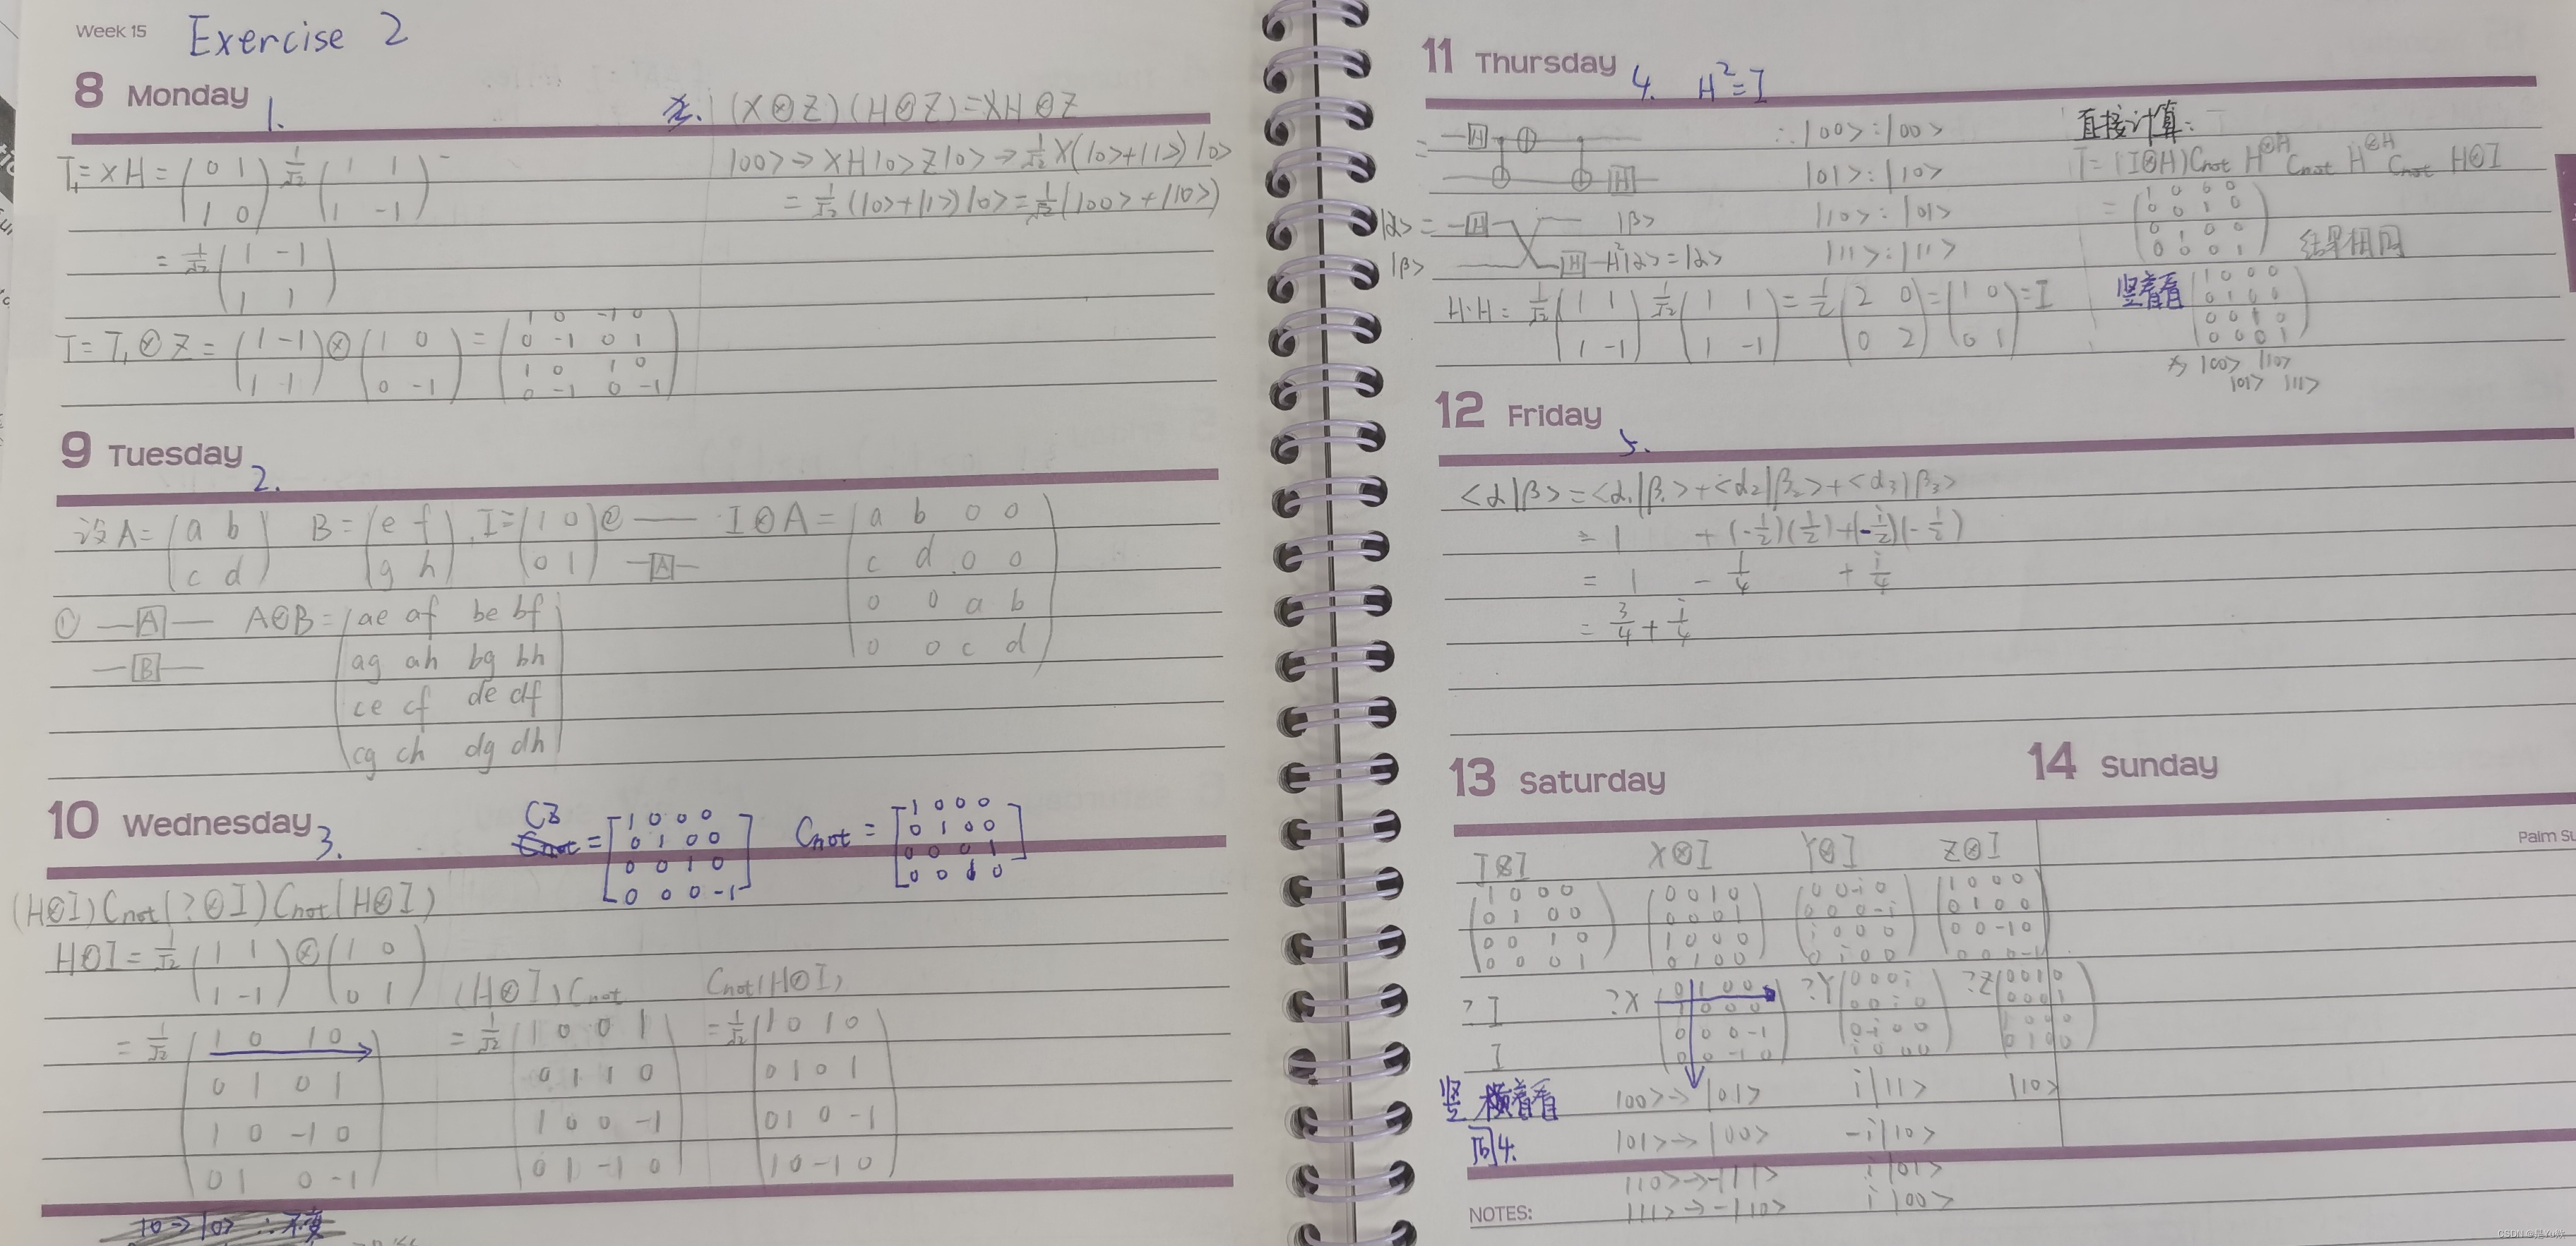 Week 15 Exercise 2
8 Monday 1.
(X⊗Z)(H⊗Z)=XH⊗Z
T₁=XH=(0 1; 1 0) 1/√2 (1 1; 1 -1)
|00> → XH|0>Z|0> → 1/√2 X(|0>+|1>)|0>
= 1/√2 (|0>+|1>)|0> = 1/√2 (|00>+|10>)
= 1/√2 (1 -1; 1 1)
T=T₁⊗Z=(1 -1; 1 1)⊗(1 0; 0 -1)=(1 0 -1 0; 0 -1 0 1; 1 0 1 0; 0 -1 0 -1)
9 Tuesday 2.
设A=(a b; c d) B=(e f; g h), I=(1 0; 0 1) ② —— I⊗A=(a b 0 0; c d 0 0; 0 0 a b; 0 0 c d)
—A—
① —A— A⊗B=(ae af be bf; ag ah bg bh; ce cf de df; cg ch dg dh)
—B—
10 Wednesday 3.
CZ = [1 0 0 0; 0 1 0 0; 0 0 1 0; 0 0 0 -1] Cnot = [1 0 0 0; 0 1 0 0; 0 0 0 1; 0 0 1 0]
(H⊗I)Cnot(?⊗I)Cnot(H⊗I)
H⊗I=1/√2 (1 1; 1 -1)⊗(1 0; 0 1)
(H⊗I)Cnot Cnot(H⊗I)
= 1/√2 (1 0 1 0; 0 1 0 1; 1 0 -1 0; 0 1 0 -1) = 1/√2 (1 0 0 1; 0 1 1 0; 1 0 0 -1; 0 1 -1 0) = 1/√2 (1 0 1 0; 0 1 0 1; 0 1 0 -1; 1 0 -1 0)
11 Thursday 4. H²=I
= H
H
∴ |00>:|00>
|01>:|10>
|10>:|01>
|11>:|11>
|α> = H |β>
|β> H H²|α>=|α>
H·H= 1/√2 (1 1; 1 -1) 1/√2 (1 1; 1 -1) = 1/2 (2 0; 0 2) = (1 0; 0 1) = I
直接计算:
T=(I⊗H)Cnot H⊗H Cnot H⊗H Cnot H⊗I
= (1 0 0 0; 0 0 1 0; 0 1 0 0; 0 0 0 1)
结果相同
竖着看 (1 0 0 0; 0 1 0 0; 0 0 1 0; 0 0 0 1)
为 |00> |10>
|01> |11>
12 Friday 5.
<α|β>=<α₁|β₁>+<α₂|β₂>+<α₃|β₃>
= 1 + (-1/2)(1/2)+(-i/2)(-1/2)
= 1 - 1/4 + i/4
= 3/4 + i/4
13 Saturday
14 Sunday
I⊗I X⊗I Y⊗I Z⊗I
(1 0 0 0; 0 1 0 0; 0 0 1 0; 0 0 0 1) (0 0 1 0; 0 0 0 1; 1 0 0 0; 0 1 0 0) (0 0 -i 0; 0 0 0 -i; i 0 0 0; 0 i 0 0) (1 0 0 0; 0 1 0 0; 0 0 -1 0; 0 0 0 -1)
?I ?X (0 1 0 0; 1 0 0 0; 0 0 0 -1; 0 0 -1 0) ?Y ?Z (0 0 1 0; 0 0 0 1; 1 0 0 0; 0 1 0 0)
I
竖 着看
同4.
|00>→|01> i|11> |10>
|01>→|00> -i|10>
|10>→-|11> i|01>
|11>→-|10> i|00>
NOTES:
CSDN